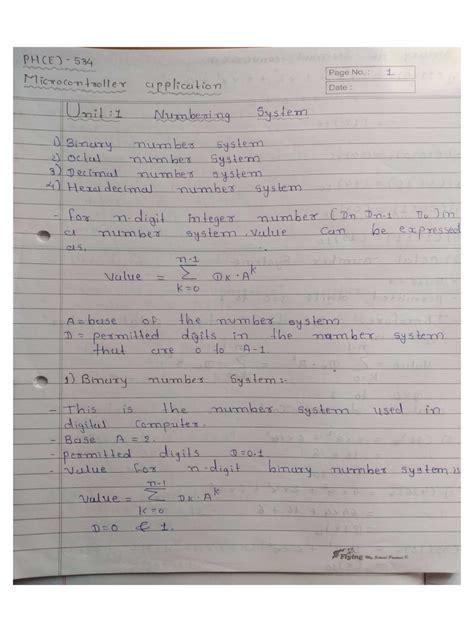 PH(E) - 534
Microcontroller application
Page No.: 1
Date :
Unit:1 Numbering System
1) Binary number system
2) Octal number System
3) Decimal number system
4) Hexadecimal number system
- for n-digit integer number (Dn Dn-1 - D0) in
a number system. value can be expressed
as,
n-1
Value = Σ Dk·A^k
k=0
A = base of the number system
D = permitted digits in the number system
that are 0 to A-1.
1) Binary number System:-
- This is the number system used in
digital computer.
- Base A = 2.
- permitted digits D=0.1
- Value for n-digit binary number system is
n-1
Value = Σ Dk·A^k
k=0
D=0 & 1.
Flying